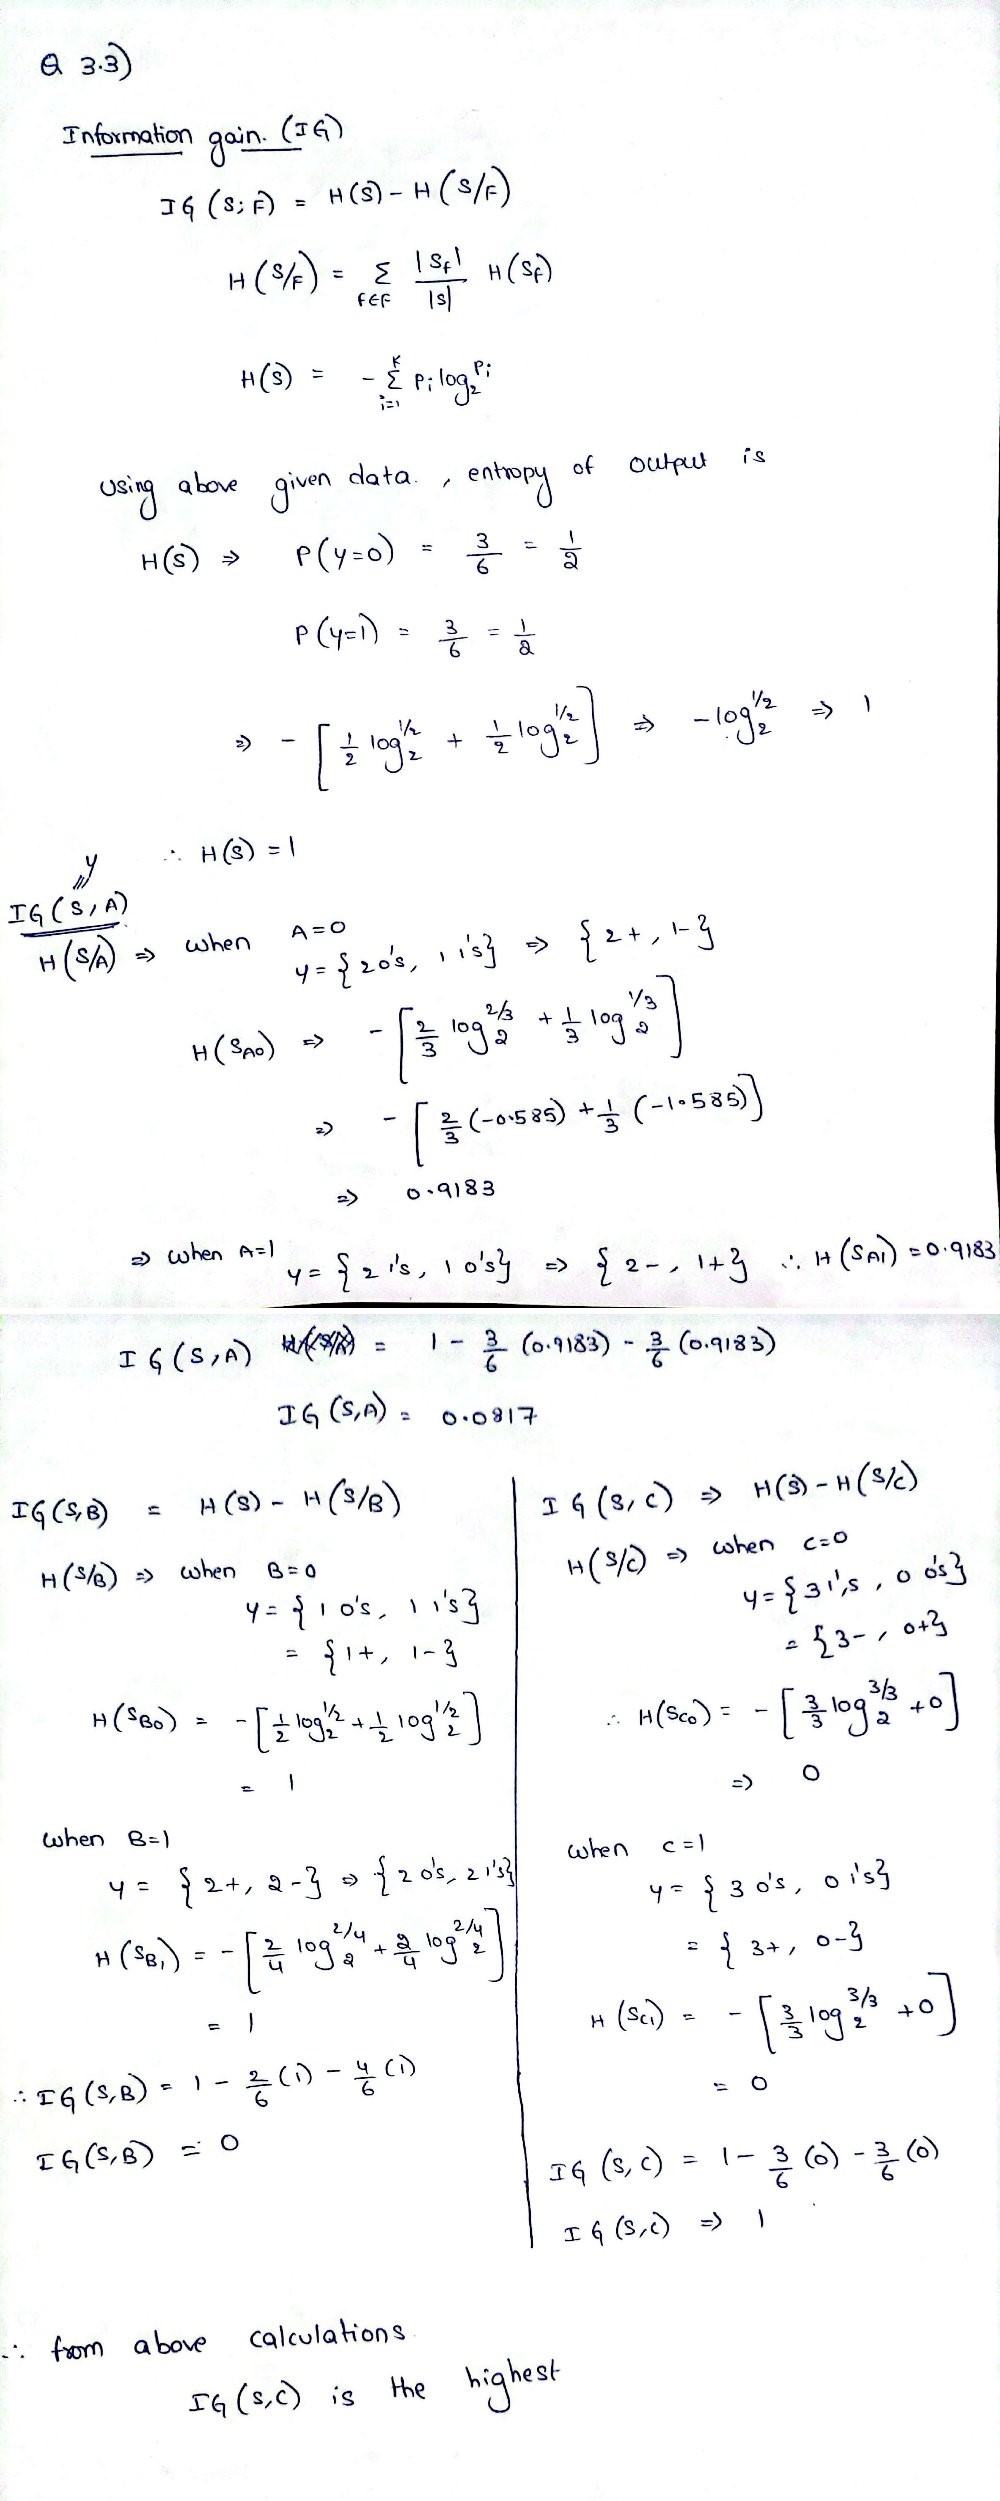 Q 3.3)
Information gain. (IG)
IG (S; F) = H(S) - H(S/F)
H(S/F) = Σ_{f∈F} |S_f|/|S| H(S_f)
H(S) = - Σ_{i=1}^{K} P_i log_2 P_i
Using above given data., entropy of output is
H(S) ⇒ P(y=0) = 3/6 = 1/2
P(y=1) = 3/6 = 1/2
⇒ - [1/2 log_2 1/2 + 1/2 log_2 1/2] ⇒ - log_2 1/2 ⇒ 1
∴ H(S) = 1
y
IG(S,A)
H(S/A) ⇒ when A=0
y = {2 0's, 1 1's} ⇒ {2+, 1-}
H(S_A0) ⇒ - [2/3 log_2 2/3 + 1/3 log_2 1/3]
⇒ - [2/3 (-0.585) + 1/3 (-1.585)]
⇒ 0.9183
⇒ when A=1 y = {2 1's, 1 0's} ⇒ {2-, 1+} ∴ H(S_A1) = 0.9183
IG(S,A) = 1 - 3/6 (0.9183) - 3/6 (0.9183)
IG(S,A) = 0.0817
IG(S,B) = H(S) - H(S/B)
H(S/B) ⇒ when B=0
y = {1 0's, 1 1's}
= {1+, 1-}
H(S_B0) = - [1/2 log_2 1/2 + 1/2 log_2 1/2]
= 1
when B=1
y = {2+, 2-} ⇒ {2 0's, 2 1's}
H(S_B1) = - [2/4 log_2 2/4 + 2/4 log_2 2/4]
= 1
∴ IG(S,B) = 1 - 2/6 (1) - 4/6 (1)
IG(S,B) = 0
IG(S,C) ⇒ H(S) - H(S/C)
H(S/C) ⇒ when C=0
y = {3 1's, 0 0's}
= {3-, 0+}
∴ H(S_C0) = - [3/3 log_2 3/3 + 0]
⇒ 0
when C=1
y = {3 0's, 0 1's}
= {3+, 0-}
H(S_C1) = - [3/3 log_2 3/3 + 0]
= 0
IG(S,C) = 1 - 3/6 (0) - 3/6 (0)
IG(S,C) ⇒ 1
∴ from above calculations
IG(S,C) is the highest